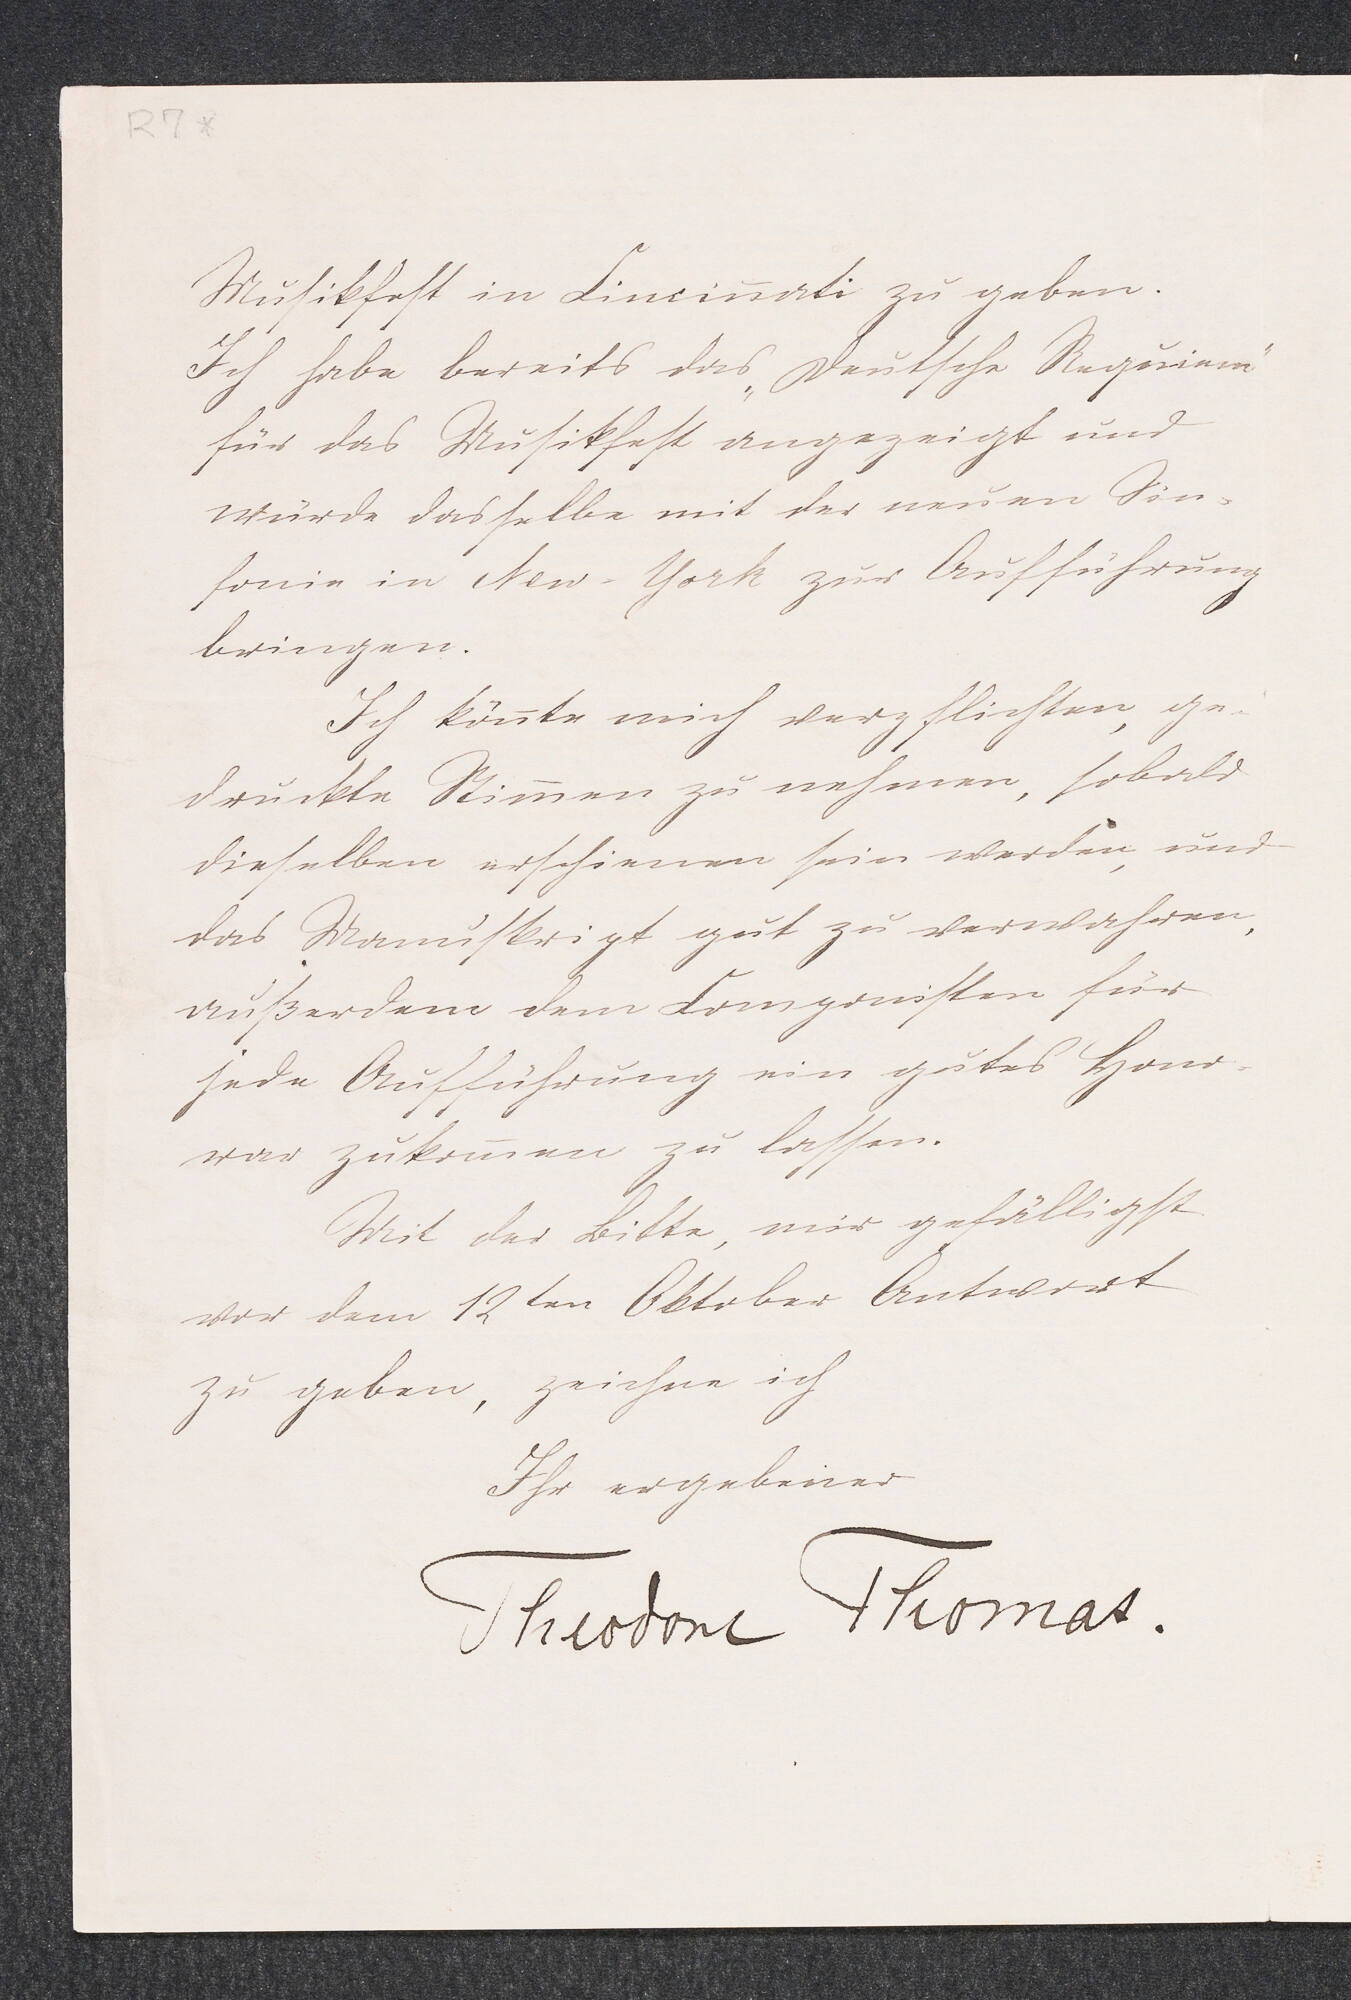 R7*
Musikfest in Cincin̄ati zu geben.
Ich habe bereits das „Deutsche Requiem"
für das Musikfest angezeigt und
würde dasselbe mit der neuen Sin-
fonie in New-York zur Aufführung
bringen.
Ich kön̄te mich verpflichten, ge-
druckte Stim̄en zu nehmen, sobald
dieselben erschienen sein werden, und
das Manuskript gut zu verwahren,
außerdem dem Componisten für
jede Aufführung ein gutes Hono-
rar zukom̄en zu lassen.
Mit der Bitte, mir gefälligst
vor dem 12ten Oktober Antwort
zu geben, zeichne ich
Ihr ergebener
Theodore Thomas.